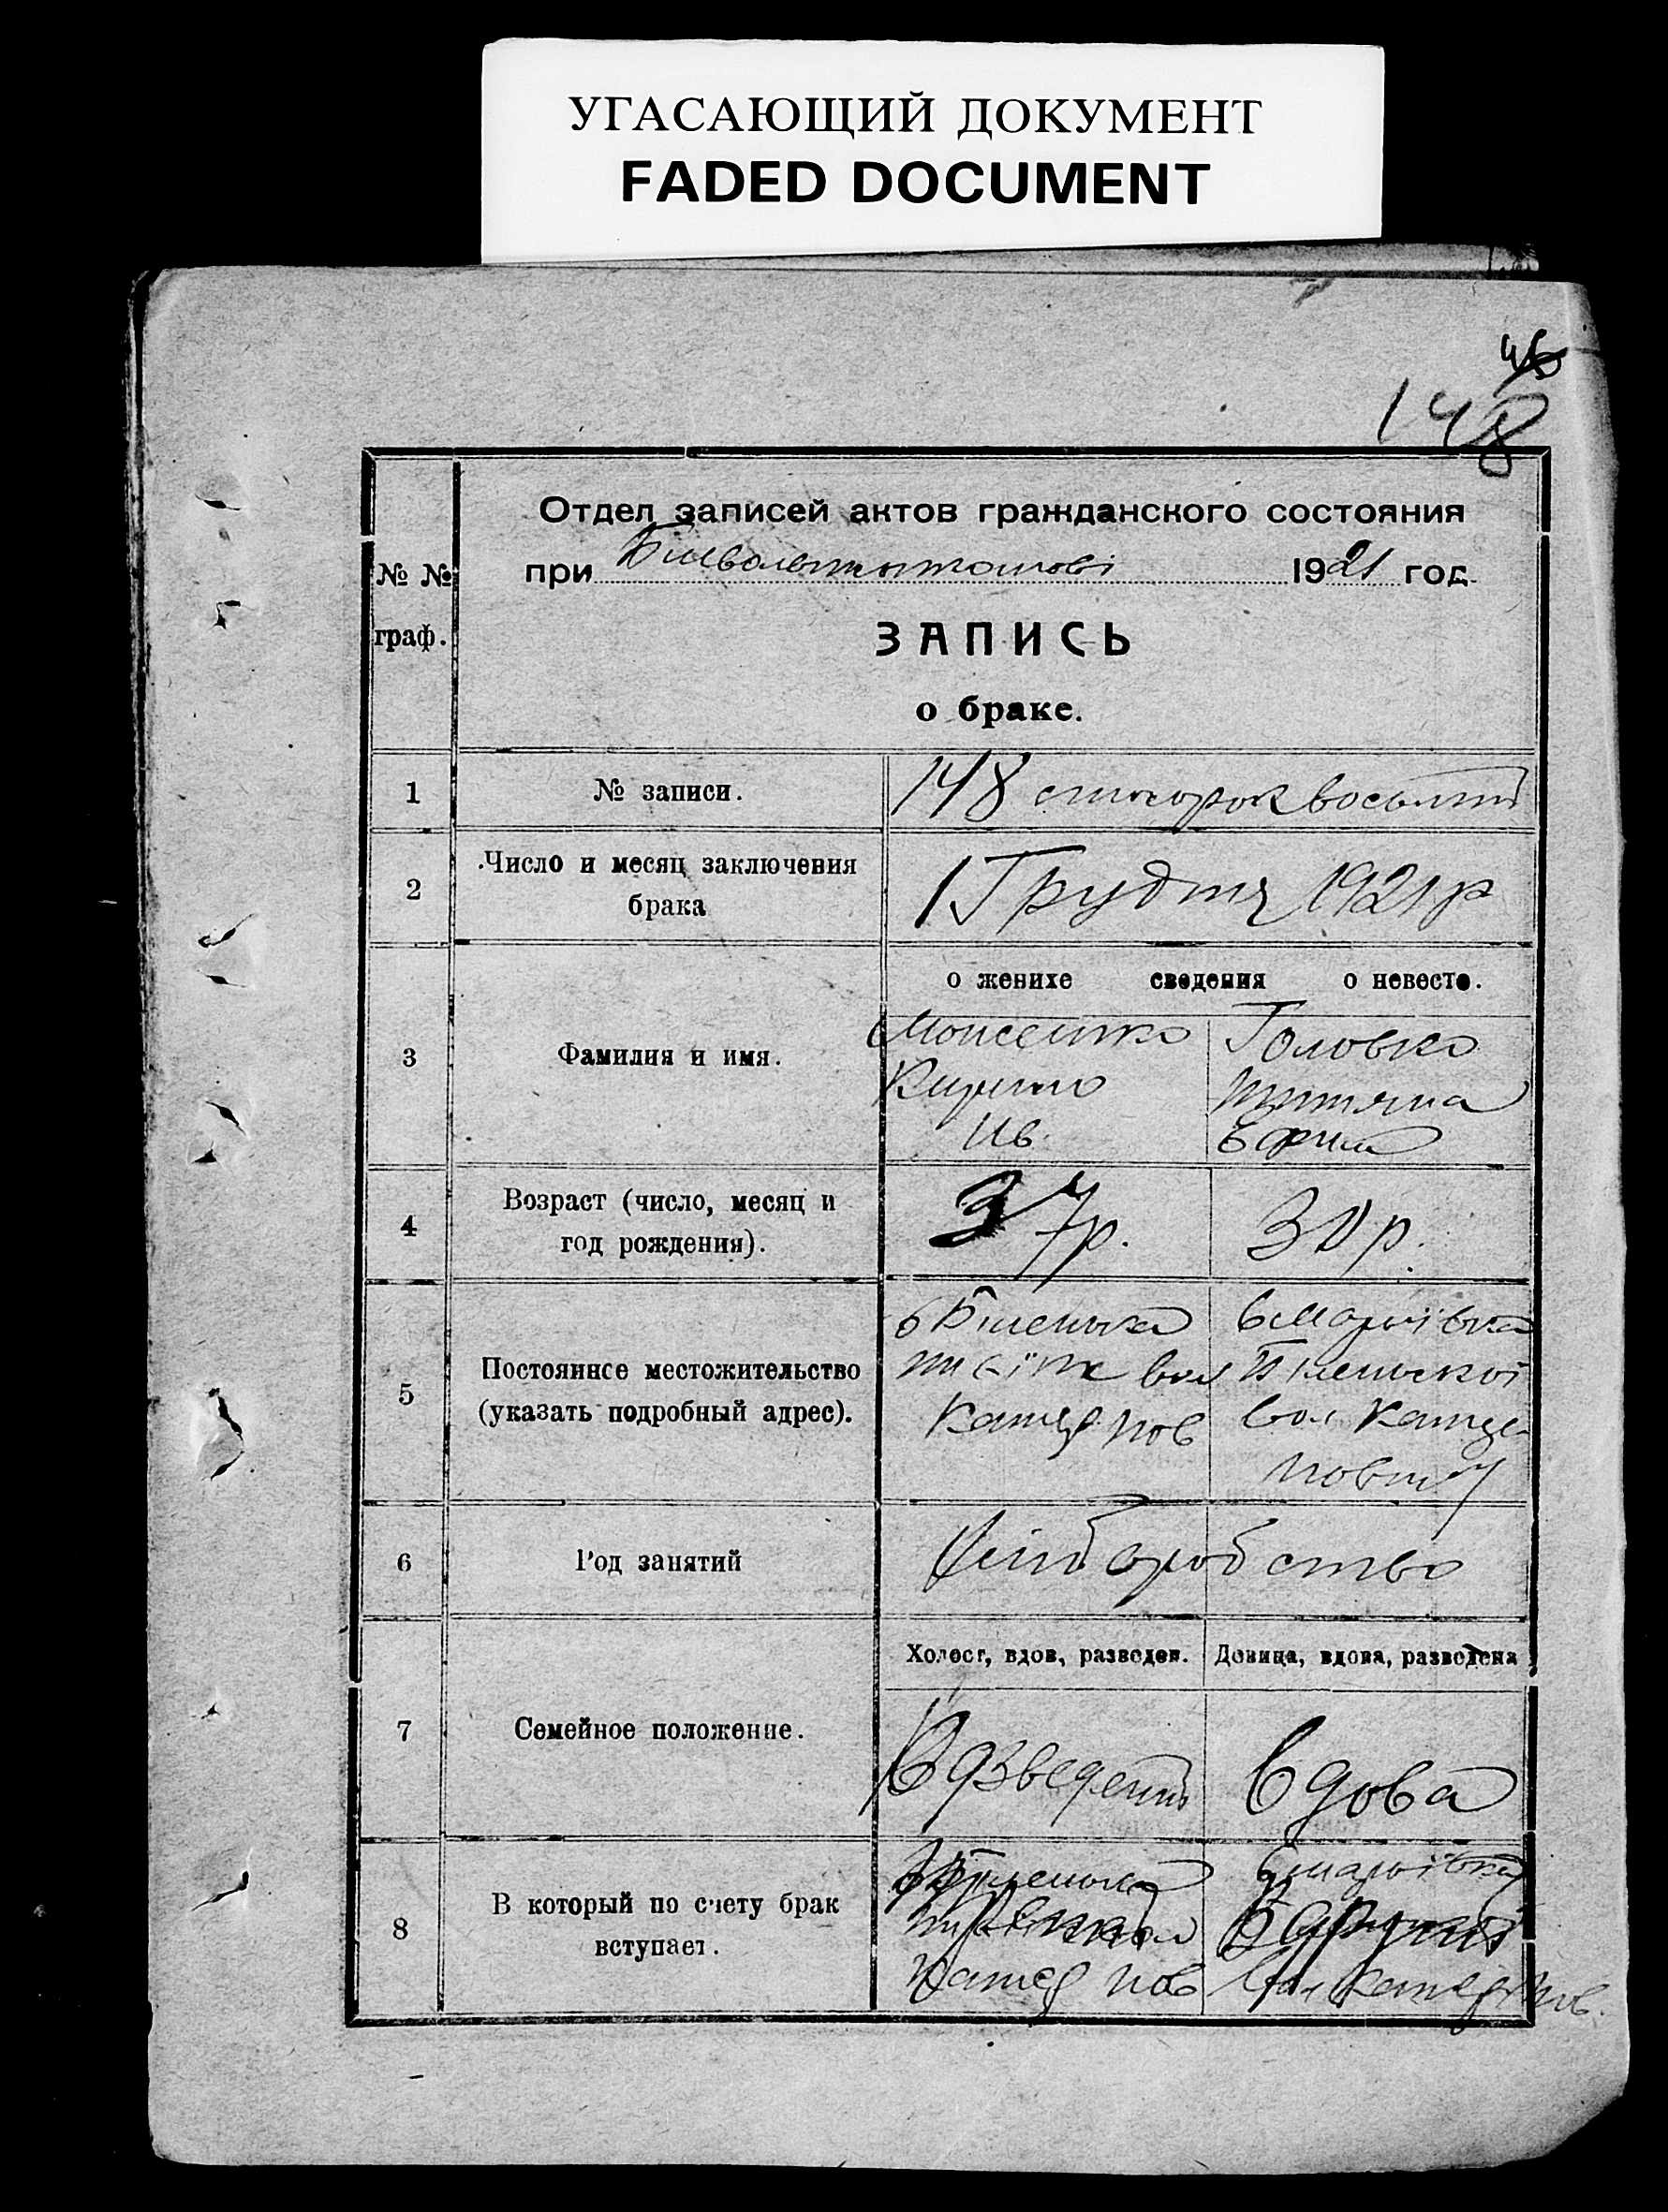 УГАСАЮЩИЙ ДОКУМЕНТ
FADED DOCUMENT
46
148
№ №
граф.
Отдел записей актов гражданского состояния
при 1921 год.
ЗАПИСЬ
о браке.
1
№ записи.
148 стосорок восьмий
2
Число и месяц заключения
брака
1 Грудня 1921 р
3
Фамилия и имя.
о женихе сведения о невесте.
Моисеенко
Кирило
Ив.
Головко
Титяна
Ефим
4
Возраст (число, месяц и
год рождения).
37р.
30 р.
5
Постоянное местожительство
(указать подробный адрес).
в Біленька
вол
Катер пов
в Маріївка
Біленької
вол Катер
повіту
6
Род занятий
Хліборобство
7
Семейное положение.
Холост, вдов, разведен.
Девица, вдова, разведена
Розведений
Вдова
8
В который по счету брак
вступает.
Біленька
Катер пов
в Маріївка
вол Катер пов.